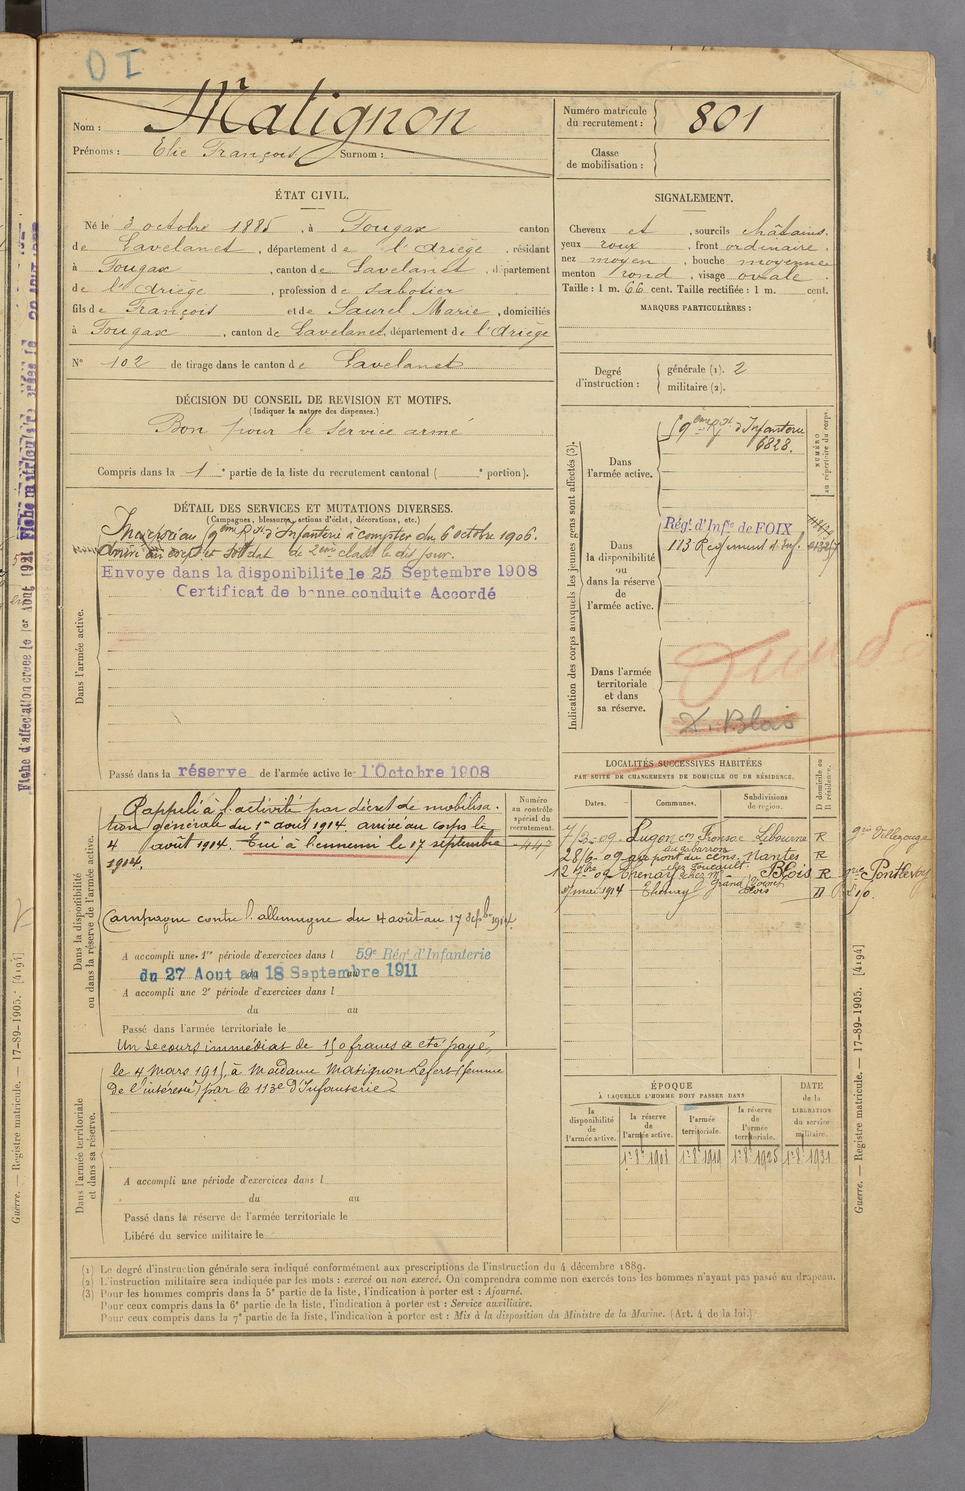 Nom : Matignon
Prénoms : Elie François Surnom :
Numéro matricule du recrutement : 801
Classe de mobilisation :
ÉTAT CIVIL.
Né le 3 octobre 1885, à Fougax canton
de Lavelanet, département de l'Ariège, résidant
à Fougax, canton de Lavelanet, département
de l'Ariège, profession de sabotier
fils de François et de Saurel Marie, domiciliés
à Fougax, canton de Lavelanet, département de l'Ariège
N° 102 de tirage dans le canton de Lavelanet
SIGNALEMENT.
Cheveux et, sourcils châtains.
yeux roux, front ordinaire.
nez moyen, bouche moyenne
menton rond, visage ovale.
Taille : 1 m. 66 cent. Taille rectifiée : 1 m. cent.
MARQUES PARTICULIÈRES :
Degré d'instruction : générale (1). 2
militaire (2).
DÉCISION DU CONSEIL DE REVISION ET MOTIFS.
(Indiquer la nature des dispenses.)
Bon pour le service armé
Compris dans la 1e partie de la liste du recrutement cantonal ( e portion).
DÉTAIL DES SERVICES ET MUTATIONS DIVERSES.
(Campagnes, blessures, actions d'éclat, décorations, etc.)
Incorporé au 59ème Rgt d'Infanterie à compter du 6 octobre 1906.
Arrivé au corps et soldat de 2ème classe le dit jour.
Envoye dans la disponibilite le 25 Septembre 1908
Certificat de bonne conduite Accordé
Dans l'armée active.
Passé dans la réserve de l'armée active le 1 Octobre 1908
Indication des corps auxquels les jeunes gens sont affectés (3).
NUMÉRO au répertoire du corps.
Dans l'armée active.
59ème Rgt d'Infanterie
6828.
Dans la disponibilité ou dans la réserve de l'armée active.
Régt. d'Infie de FOIX
113 Regiment d'Inf.
Dans l'armée territoriale et dans sa réserve.
Z. Blois
Dans la disponibilité ou dans la réserve de l'armée active.
Numéro au contrôle spécial du recrutement.
447
Rappelé à l'activité par décret de mobilisa-
tion générale du 1er août 1914. arrivé au corps le
4 août 1914. Tué à l'ennemi le 17 septembre
1914.
Campagne contre l'allemagne du 4 août au 17 septbre 1914.
A accompli une 1re période d'exercices dans l 59e Régt. d'Infanterie
du 27 Aout au 18 Septembre 1911
A accompli une 2e période d'exercices dans l
du au
Passé dans l'armée territoriale le
Un secours immédiat de 150 francs a été payé,
le 4 mars 1915, à Madame Matignon Lefert (femme
De l'intéressé) par le 113e d'Infanterie
Dans l'armée territoriale et dans sa réserve.
A accompli une période d'exercices dans l
du au
Passé dans la réserve de l'armée territoriale le
Libéré du service militaire le
LOCALITÉS SUCCESSIVES HABITÉES
PAR SUITE DE CHANGEMENTS DE DOMICILE OU DE RÉSIDENCE.
Dates. Communes. Subdivisions de région. D domicile ou R résidence.
7/3-09 Lugon con Fronsac Libourne R
28/6-09 Nantes R
12 9bre 09 Thenay Blois R Pontlevoy
1914 Thenay Blois D
ÉPOQUE
À LAQUELLE L'HOMME DOIT PASSER DANS
la disponibilité de l'armée active.
la réserve de l'armée active.
l'armée territoriale.
la réserve de l'armée territoriale.
DATE de la LIBÉRATION du service militaire.
1r 8e 1908 1r 8e 1919 1r 8e 1925 1r 8e 1931
(1) Le degré d'instruction générale sera indiqué conformément aux prescriptions de l'instruction du 4 décembre 1889.
(2) L'instruction militaire sera indiquée par les mots : exercé ou non exercé. On comprendra comme non exercés tous les hommes n'ayant pas passé au drapeau.
(3) Pour les hommes compris dans la 5e partie de la liste, l'indication à porter est : Ajourné.
Pour ceux compris dans la 6e partie de la liste, l'indication à porter est : Service auxiliaire.
Pour ceux compris dans la 7e partie de la liste, l'indication à porter est : Mis à la disposition du Ministre de la Marine. (Art. 4 de la loi.)
Guerre. — Registre matricule. — 17-89-1905. [4194]
Guerre. — Registre matricule. — 17-89-1905. [4194]
Fiche d'affectation créée le 1er Aout 1921